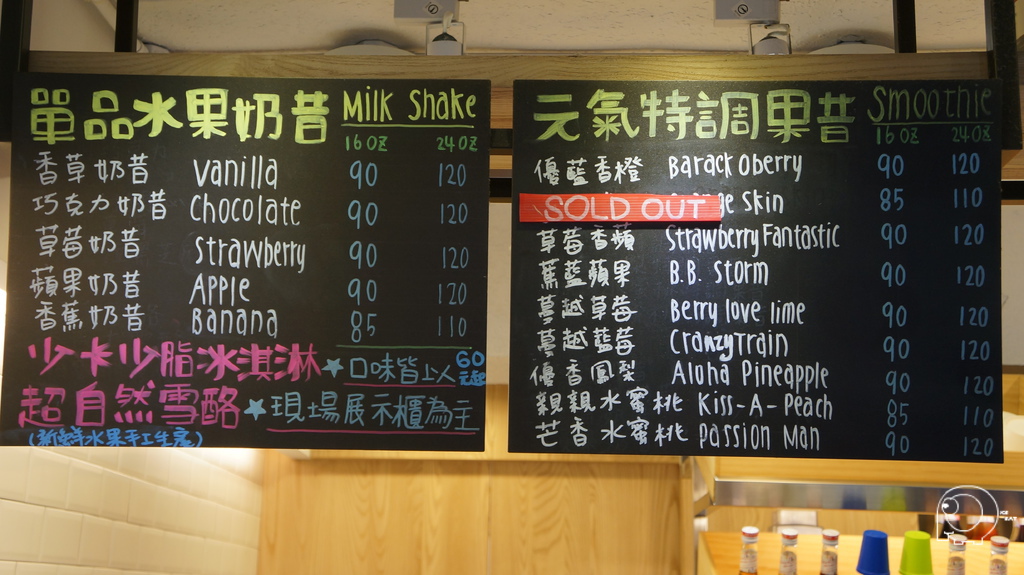 單品水果奶昔 Milk Shake
16OZ 24OZ
香草奶昔 Vanilla 90 120
巧克力奶昔 Chocolate 90 120
草莓奶昔 Strawberry 90 120
蘋果奶昔 Apple 90 120
香蕉奶昔 Banana 85 110
少卡少脂冰淇淋 ★口味皆上人 60元起
超自然雪酪 ★現場展示櫃為主
水果手工生產)
元氣特調果昔 Smoothie
16OZ 24OZ
優藍香橙 Barack Oberry 90 120
SOLD OUT e Skin 85 110
草莓香蘋 Strawberry Fantastic 90 120
蕉藍蘋果 B.B. Storm 90 120
蔓越草莓 Berry love lime 90 120
蔓越藍莓 Cranzy Train 90 120
優香鳳梨 Aloha Pineapple 90 120
親親水蜜桃 Kiss-A-Peach 85 110
芒香水蜜桃 Passion Man 90 120